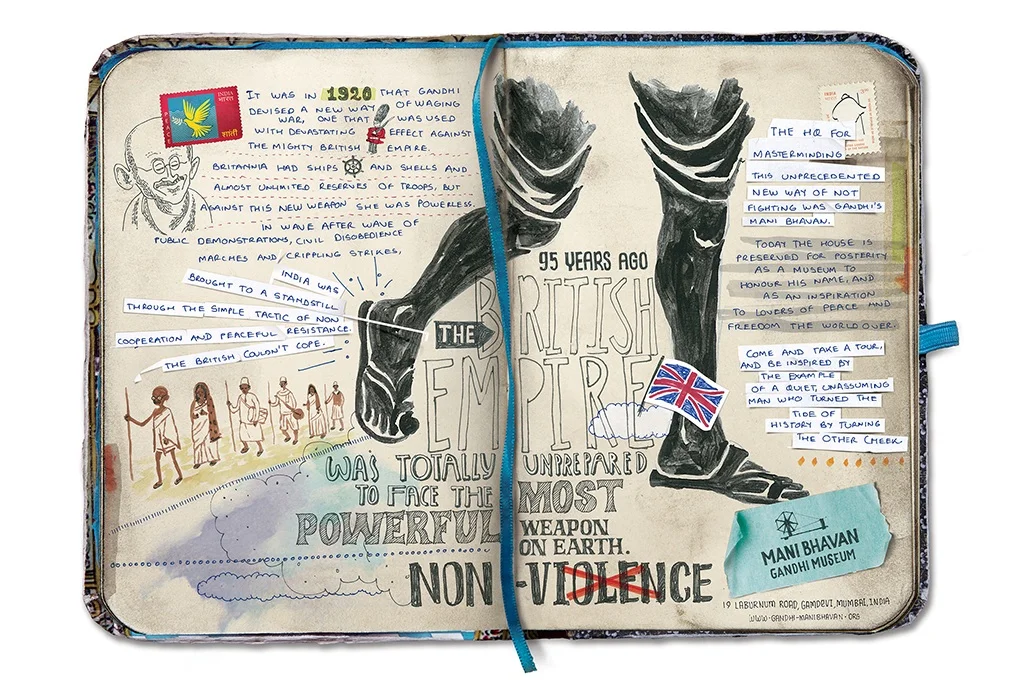 PEACE
INDIA
भारत
शांती
IT WAS IN 1920 THAT GANDHI
DEVISED A NEW WAY OF WAGING
WAR, ONE THAT WAS USED
WITH DEVASTATING EFFECT AGAINST
THE MIGHTY BRITISH EMPIRE.
BRITANNIA HAD SHIPS AND SHELLS AND
ALMOST UNLIMITED RESERVES OF TROOPS, BUT
AGAINST THIS NEW WEAPON SHE WAS POWERLESS.
IN WAVE AFTER WAVE OF
PUBLIC DEMONSTRATIONS, CIVIL DISOBEDIENCE
MARCHES AND CRIPPLING STRIKES,
INDIA WAS
BROUGHT TO A STANDSTILL
THROUGH THE SIMPLE TACTIC OF NON
COOPERATION AND PEACEFUL RESISTANCE.
THE BRITISH COULDN'T COPE.
95 YEARS AGO
THE BRITISH
EMPIRE
WAS TOTALLY UNPREPARED
TO FACE THE MOST
POWERFUL WEAPON
ON EARTH.
NON-VIOLENCE
INDIA
THE HQ FOR
MASTERMINDING
THIS UNPRECEDENTED
NEW WAY OF NOT
FIGHTING WAS GANDHI'S
MANI BHAVAN.
TODAY THE HOUSE IS
PRESERVED FOR POSTERITY
AS A MUSEUM TO
HONOUR HIS NAME, AND
AS AN INSPIRATION
TO LOVERS OF PEACE AND
FREEDOM THE WORLD OVER.
COME AND TAKE A TOUR,
AND BE INSPIRED BY
THE EXAMPLE
OF A QUIET, UNASSUMING
MAN WHO TURNED THE
TIDE OF
HISTORY BY TURNING
THE OTHER CHEEK
MANI BHAVAN
GANDHI MUSEUM
19 LABURNUM ROAD, GAMDEVI, MUMBAI, INDIA
WWW.GANDHI-MANIBHAVAN.ORG